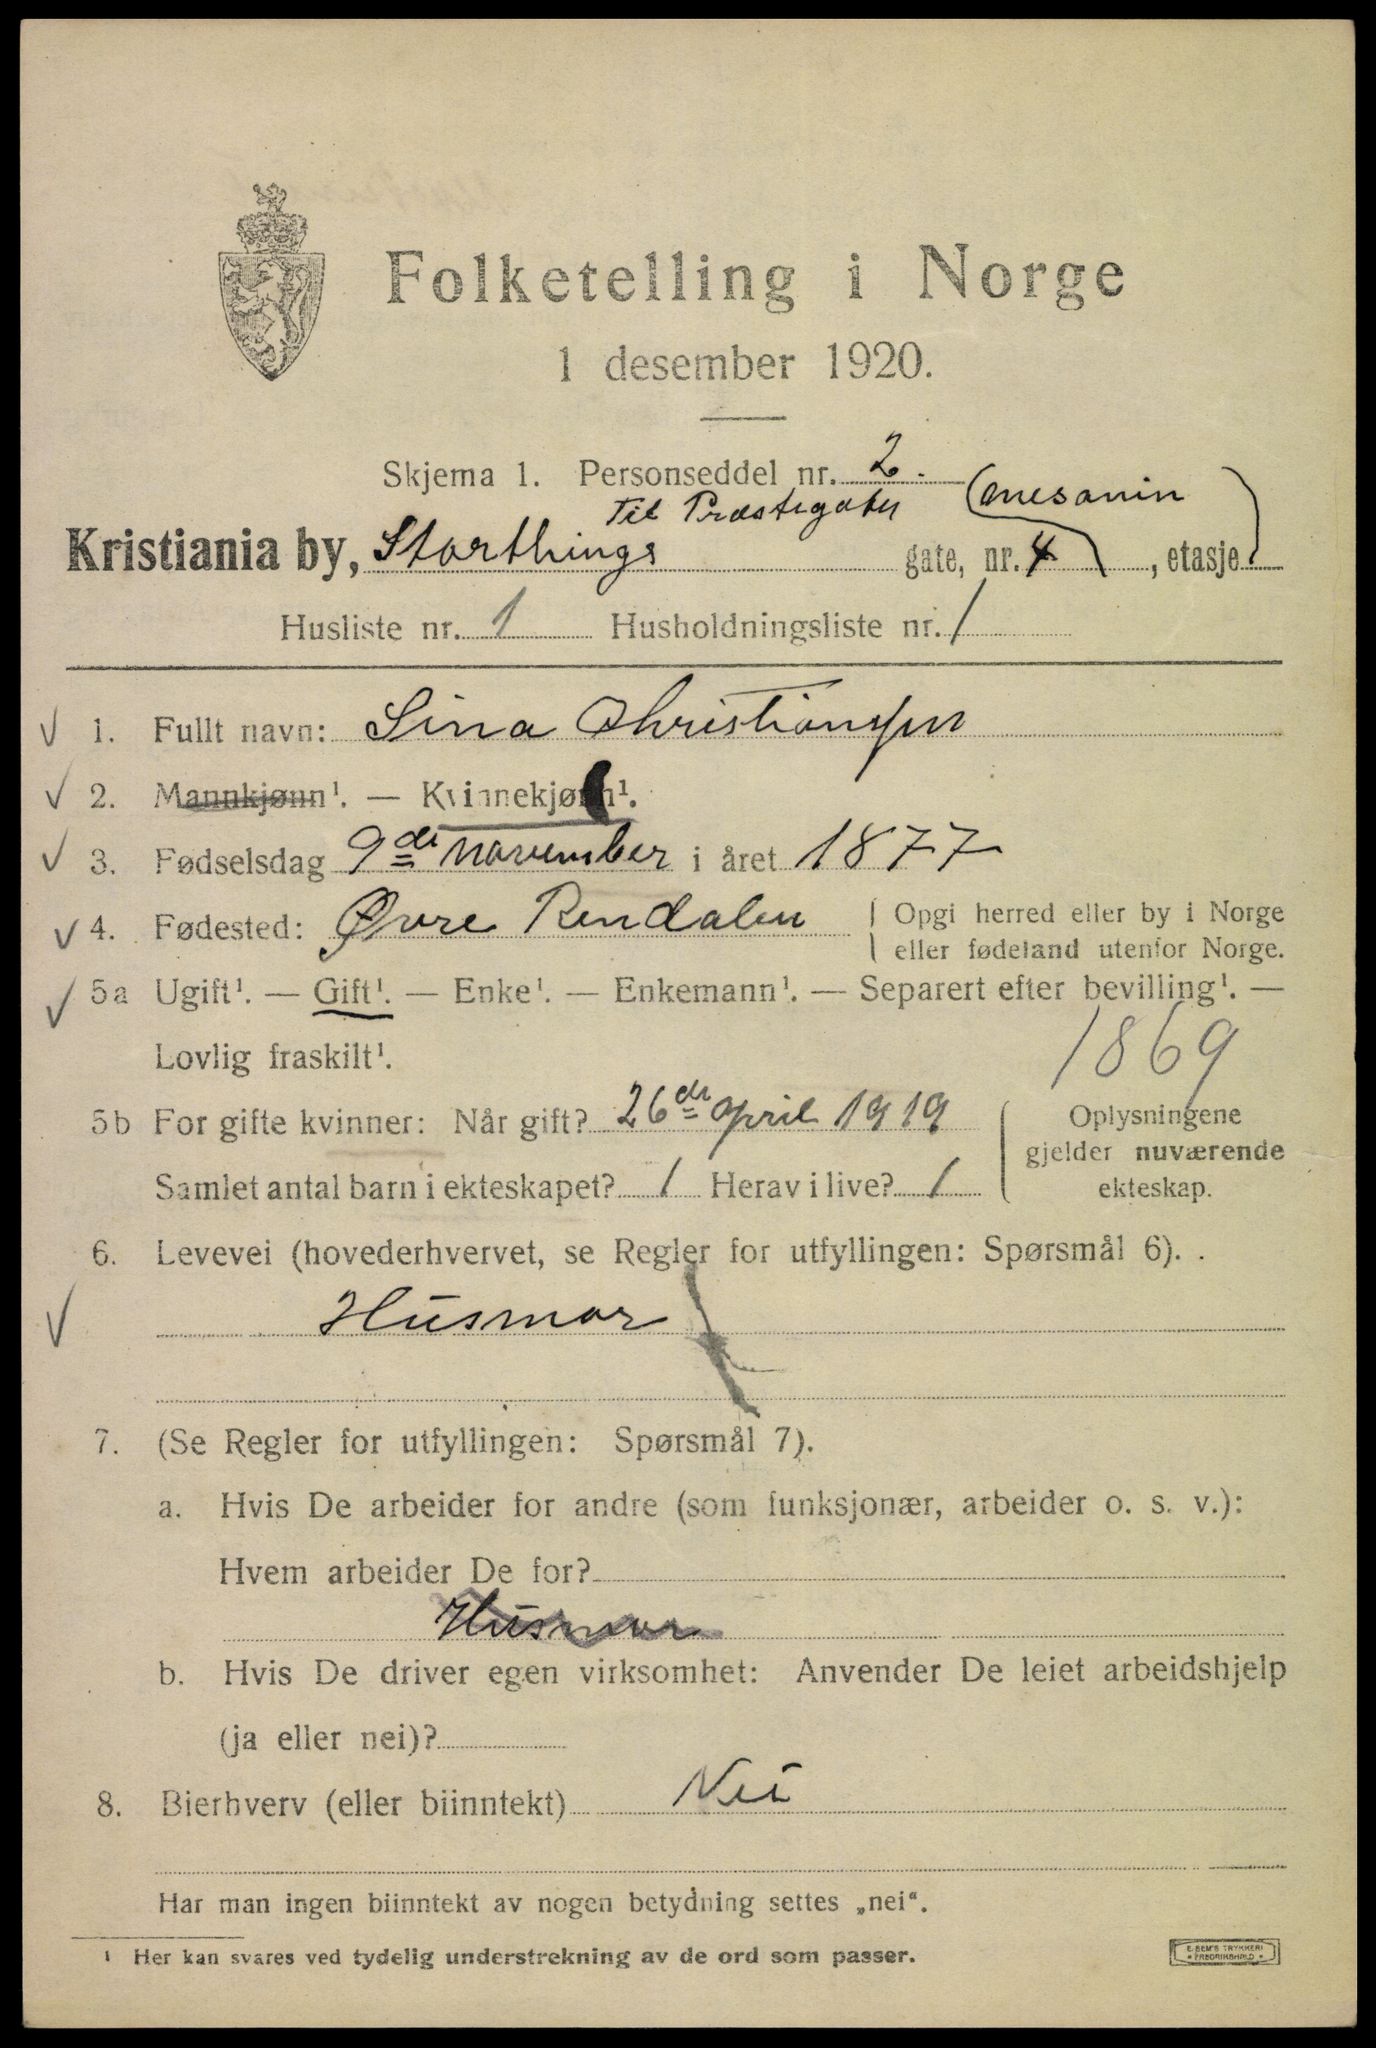 Folketelling i Norge
1 desember 1920.
Skjema 1. Personseddel nr. 2.
Til Præstegaten (mesanin)
Kristiania by, Storthings gate, nr. 4, etasje
Husliste nr. 1 Husholdningsliste nr. 1
1. Fullt navn: Sina Christiansen
2. Mannkjønn¹. — Kvinnekjønn¹.
3. Fødselsdag 9de november i året 1877
4. Fødested: Øvre Rendalen { Opgi herred eller by i Norge
eller fødeland utenfor Norge.
5a Ugift¹. — Gift¹. — Enke¹. — Enkemann¹. — Separert efter bevilling¹. —
Lovlig fraskilt¹. 1869
5b For gifte kvinner: Når gift? 26de april 1919 { Oplysningene
gjelder nuværende
Samlet antal barn i ekteskapet? 1 Herav i live? 1 ekteskap.
6. Levevei (hovederhvervet, se Regler for utfyllingen: Spørsmål 6). .
Husmor
7. (Se Regler for utfyllingen: Spørsmål 7).
a. Hvis De arbeider for andre (som funksjonær, arbeider o. s. v.):
Hvem arbeider De for?
Husmor
b. Hvis De driver egen virksomhet: Anvender De leiet arbeidshjelp
(ja eller nei)?
8. Bierhverv (eller biinntekt) Nei
Har man ingen biinntekt av nogen betydning settes „nei“.
¹ Her kan svares ved tydelig understrekning av de ord som passer.
E. SEM'S TRYKKERI
* FREDRIKSHALD *